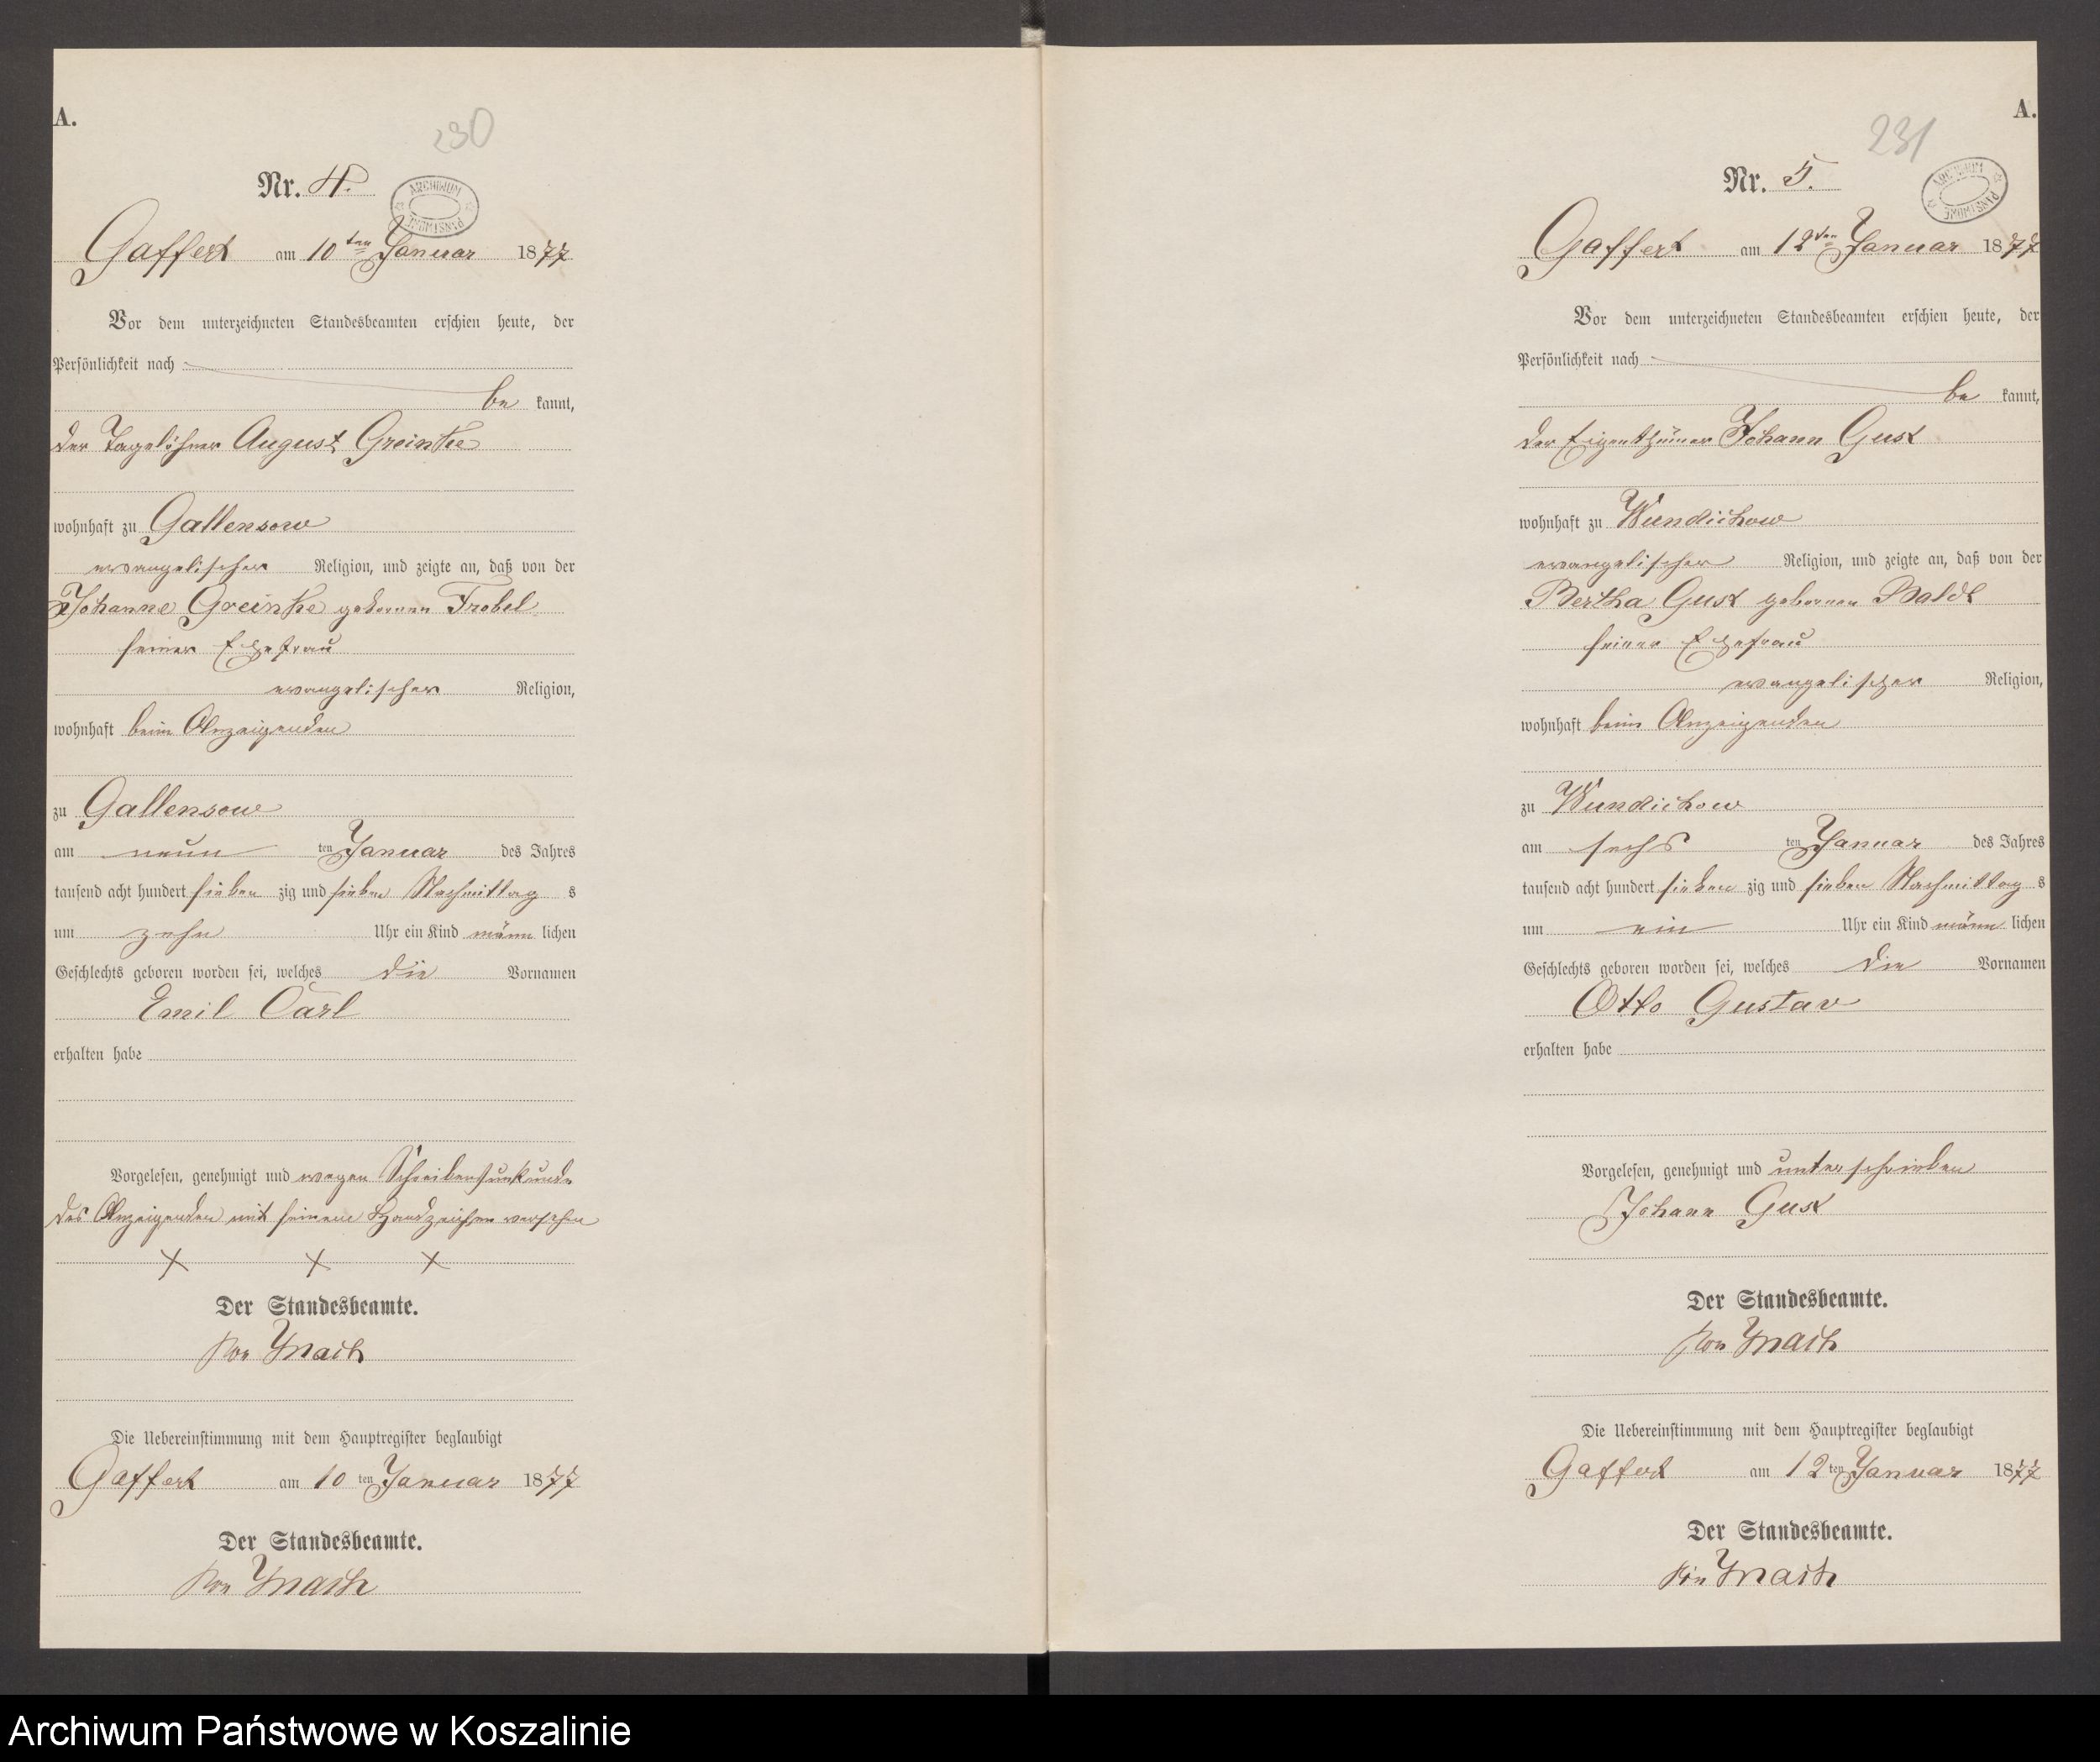 A.
230
Nr. 4.
ARCHIWUM PAŃSTWOWE
Gaffert am 10ten Januar 1877
Vor dem unterzeichneten Standesbeamten erschien heute, der
Persönlichkeit nach
be kannt,
der Tagelöhner August Greinke
wohnhaft zu Gallensow
evangelischer Religion, und zeigte an, daß von der
Johanne Greinke geborenen Trobel
seiner Ehefrau
evangelischer Religion,
wohnhaft beim Anzeigenden
zu Gallensow
am neun ten Januar des Jahres
tausend acht hundert sieben zig und sieben Nachmittag s
um zehn Uhr ein Kind männ lichen
Geschlechts geboren worden sei, welches die Vornamen
Emil Carl
erhalten habe
Vorgelesen, genehmigt und wegen Schreibensunkunde
des Anzeigenden mit seinem Handzeichen versehen
X X X
Der Standesbeamte.
Die Uebereinstimmung mit dem Hauptregister beglaubigt
Gaffert am 10 ten Januar 1877
Der Standesbeamte.
A.
231
Nr. 5.
ARCHIWUM PAŃSTWOWE
Gaffert am 12ten Januar 1877
Vor dem unterzeichneten Standesbeamten erschien heute, der
Persönlichkeit nach
be kannt,
der Eigenthümer Johann Gust
wohnhaft zu Wundichow
evangelischer Religion, und zeigte an, daß von der
Bertha Gust geborenen Baldt
seiner Ehefrau
evangelischer Religion,
wohnhaft beim Anzeigenden
zu Wundichow
am sechs ten Januar des Jahres
tausend acht hundert sieben zig und sieben Nachmittag s
um ein Uhr ein Kind männ lichen
Geschlechts geboren worden sei, welches die Vornamen
Otto Gustav
erhalten habe
Vorgelesen, genehmigt und unterschrieben
Johann Gust
Der Standesbeamte.
Die Uebereinstimmung mit dem Hauptregister beglaubigt
Gaffert am 12 ten Januar 1877
Der Standesbeamte.
Archiwum Państwowe w Koszalinie